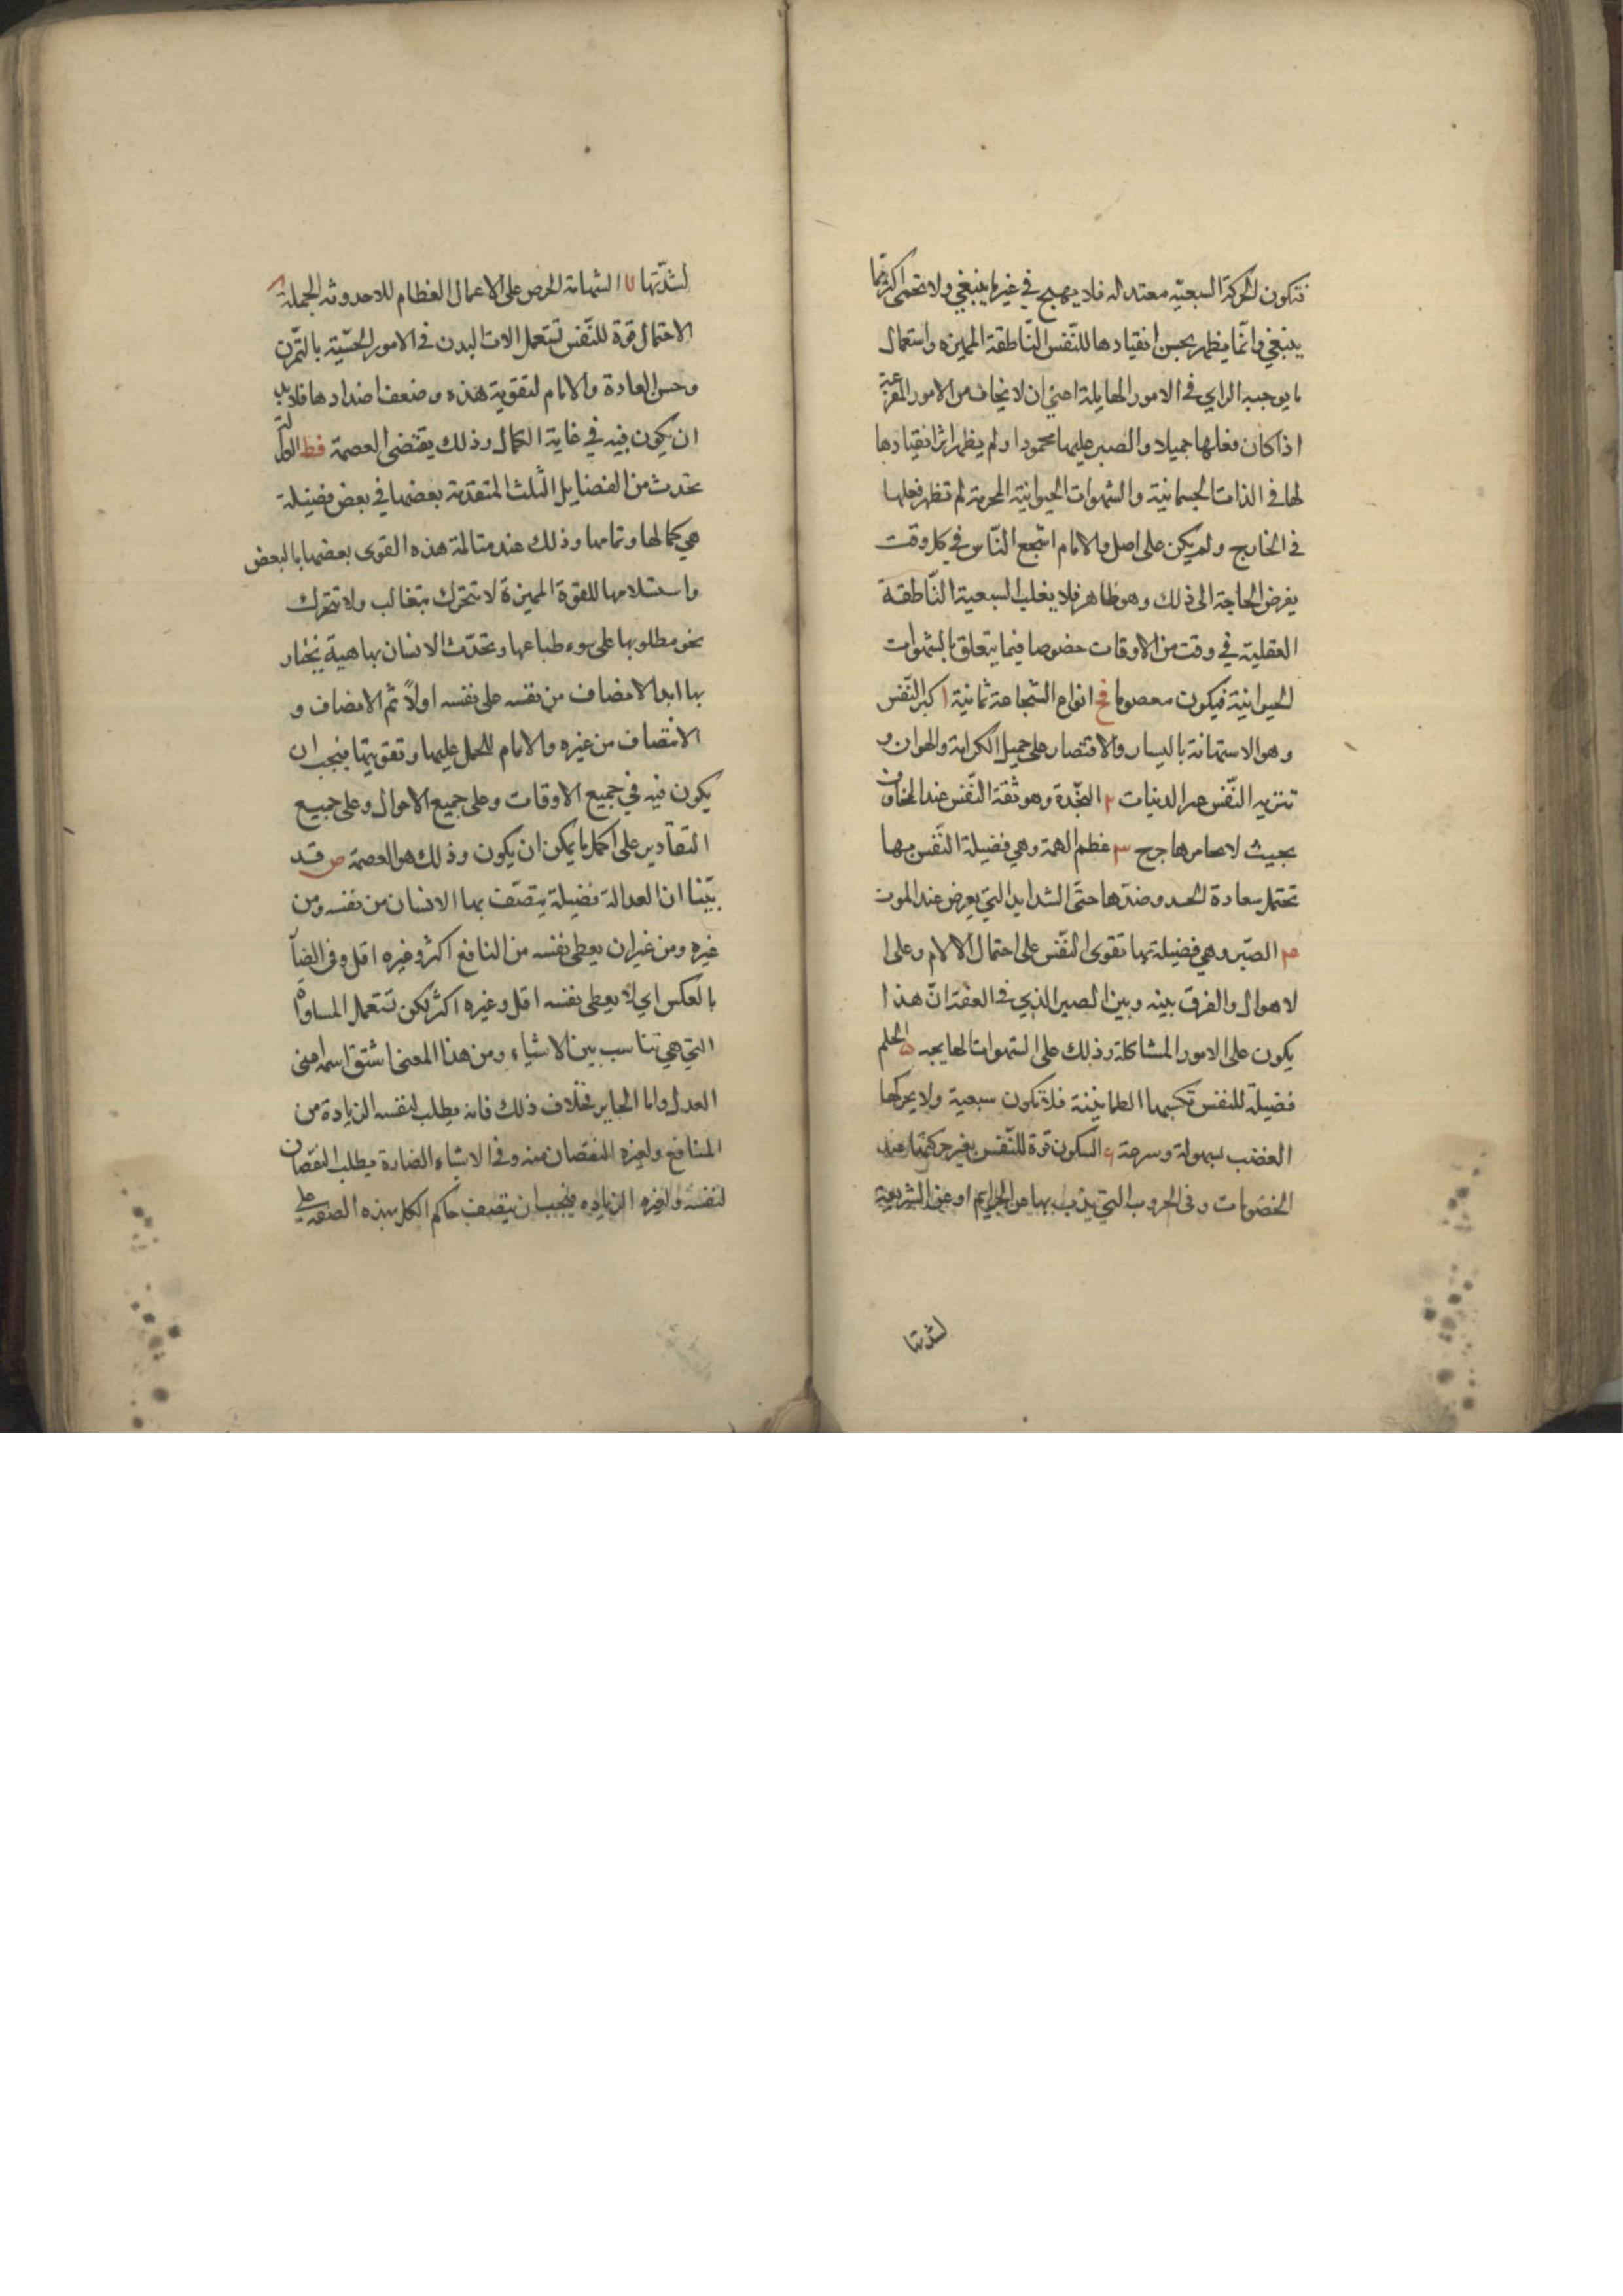 فتكون الحركة السبعيه معتدله فلا يهيج في غير ما ينبغي ولا تحمى اكثر مما
ينبغي وانّما يظهر بحسن انقيادها للنّفس النّاطقة المميزه واستعمال
ما يوجبه الراي في الامور الهايلة اعني ان لا يخاف من الامور المفزعة
اذا كان فعلها جميلا والصبر عليها محمودا ولم يظهر اثر انقيادها
لها في الذات الجسمانية والشهوات الحيوانية المحرمة لم تظهر فعلها
في الخارج ولم يكن على اصل والامام اشجع النّاس في كل وقت
يفرض الحاجة الى ذلك وهو ظاهر فلا يغلب السبعية النّاطقة
العقلية في وقت من الاوقات خصوصا فيما يتعلق بالشهوات
الحيوانية فيكون معصوما فح انواع الشجاعة ثمانية ١ كبر النّفس
وهو الاستهانة باليسار والاقتصار على حميل الكرامة والهوان و
تنزيه النّفس عن الدنيات ٢ النجّدة وهو ثقة النّفس عند المخاوف
بحيث لا يخامرها جرح ٣ عظم الهمة وهي فضيلة النّفس بها
تحتمل سعادة الجد وضدّها حتّى الشدايد التي يعرض عند الموت
۴ الصبّر وهي فضيلة بها تقوى النّفس على احتمال الالام وعلى ا
لاهوال والفرق بينه وبين الصبر الذي في العفّة انّ هذا
يكون على الامور المشاكلة وذلك على الشهوات الهايجه ۵ الحلم
فضيلة للنفس تكسبها الطمانينة فلا تكون سبعية ولا يحركها
الغضب بسهولة وسرعة ۶ السكون قوة للنّفس بغير حركتها عند
الخصومات وفي الحروب التي يذب بها عن الحرايم او عن الشريعة
لشدتها
لشدّتها ٧ الشهامة الحرص على الاعمال العظام للاحدوثه الجميلة ٨
الاحتمال قوّة للنّفس تستعمل الات البدن في الامور الحسّية بالتمّرن
وحسن العادة والامام لتقوية هذه وضعف اضدادها فلا بد
ان يكون فيه في غاية الكمال وذلك يقتضي العصمة فط العدالة
تحدث من الفضايل الثلث المتقدمة بعضها في بعض فضيلة
هي كمالها وتمامها وذلك عند مسالمة هذه القوى بعضها بالبعض
واستسلامها للقوة المميزة لا تتحرك بتغالب ولا تتحرك
نحو مطلوبها على سوء طباعها وتحدّث الانسان بها هيئة يختار
بها ابدا الانصاف من نفسه على نفسه اولاً ثم الانصاف و
الانتصاف من غيره والامام للحمل عليها وتقويتها فيجب ان
يكون فيه في جميع الاوقات وعلى جميع الاحوال وعلى جميع
التقادير على اكمل ما يمكن ان يكون وذلك هو العصمة ص قد
بيّنا ان العدالة فضيلة يتصّف بها الانسان من نفسه ومن
غيره ومن غير ان يعطى نفسه من النافع اكثر وغيره اقل وفي الضآ
بالعكس اي لا يعطى نفسه اقل وغيره اكثر لكن تستعمل المساواة
التي هي تناسب بين الاشياء ومن هذا المعنى اشتق اسمه اعني
العدل واما الجاير فخلاف ذلك فانه يطلب لنفسه الزيادة من
المنافع ولغيره النقصان منه وفي الاشياء الضارة يطلب النقصان
لنفسه ولغيره الزياده فيجب ان يتصف حاكم الكل بهذه الصفة على